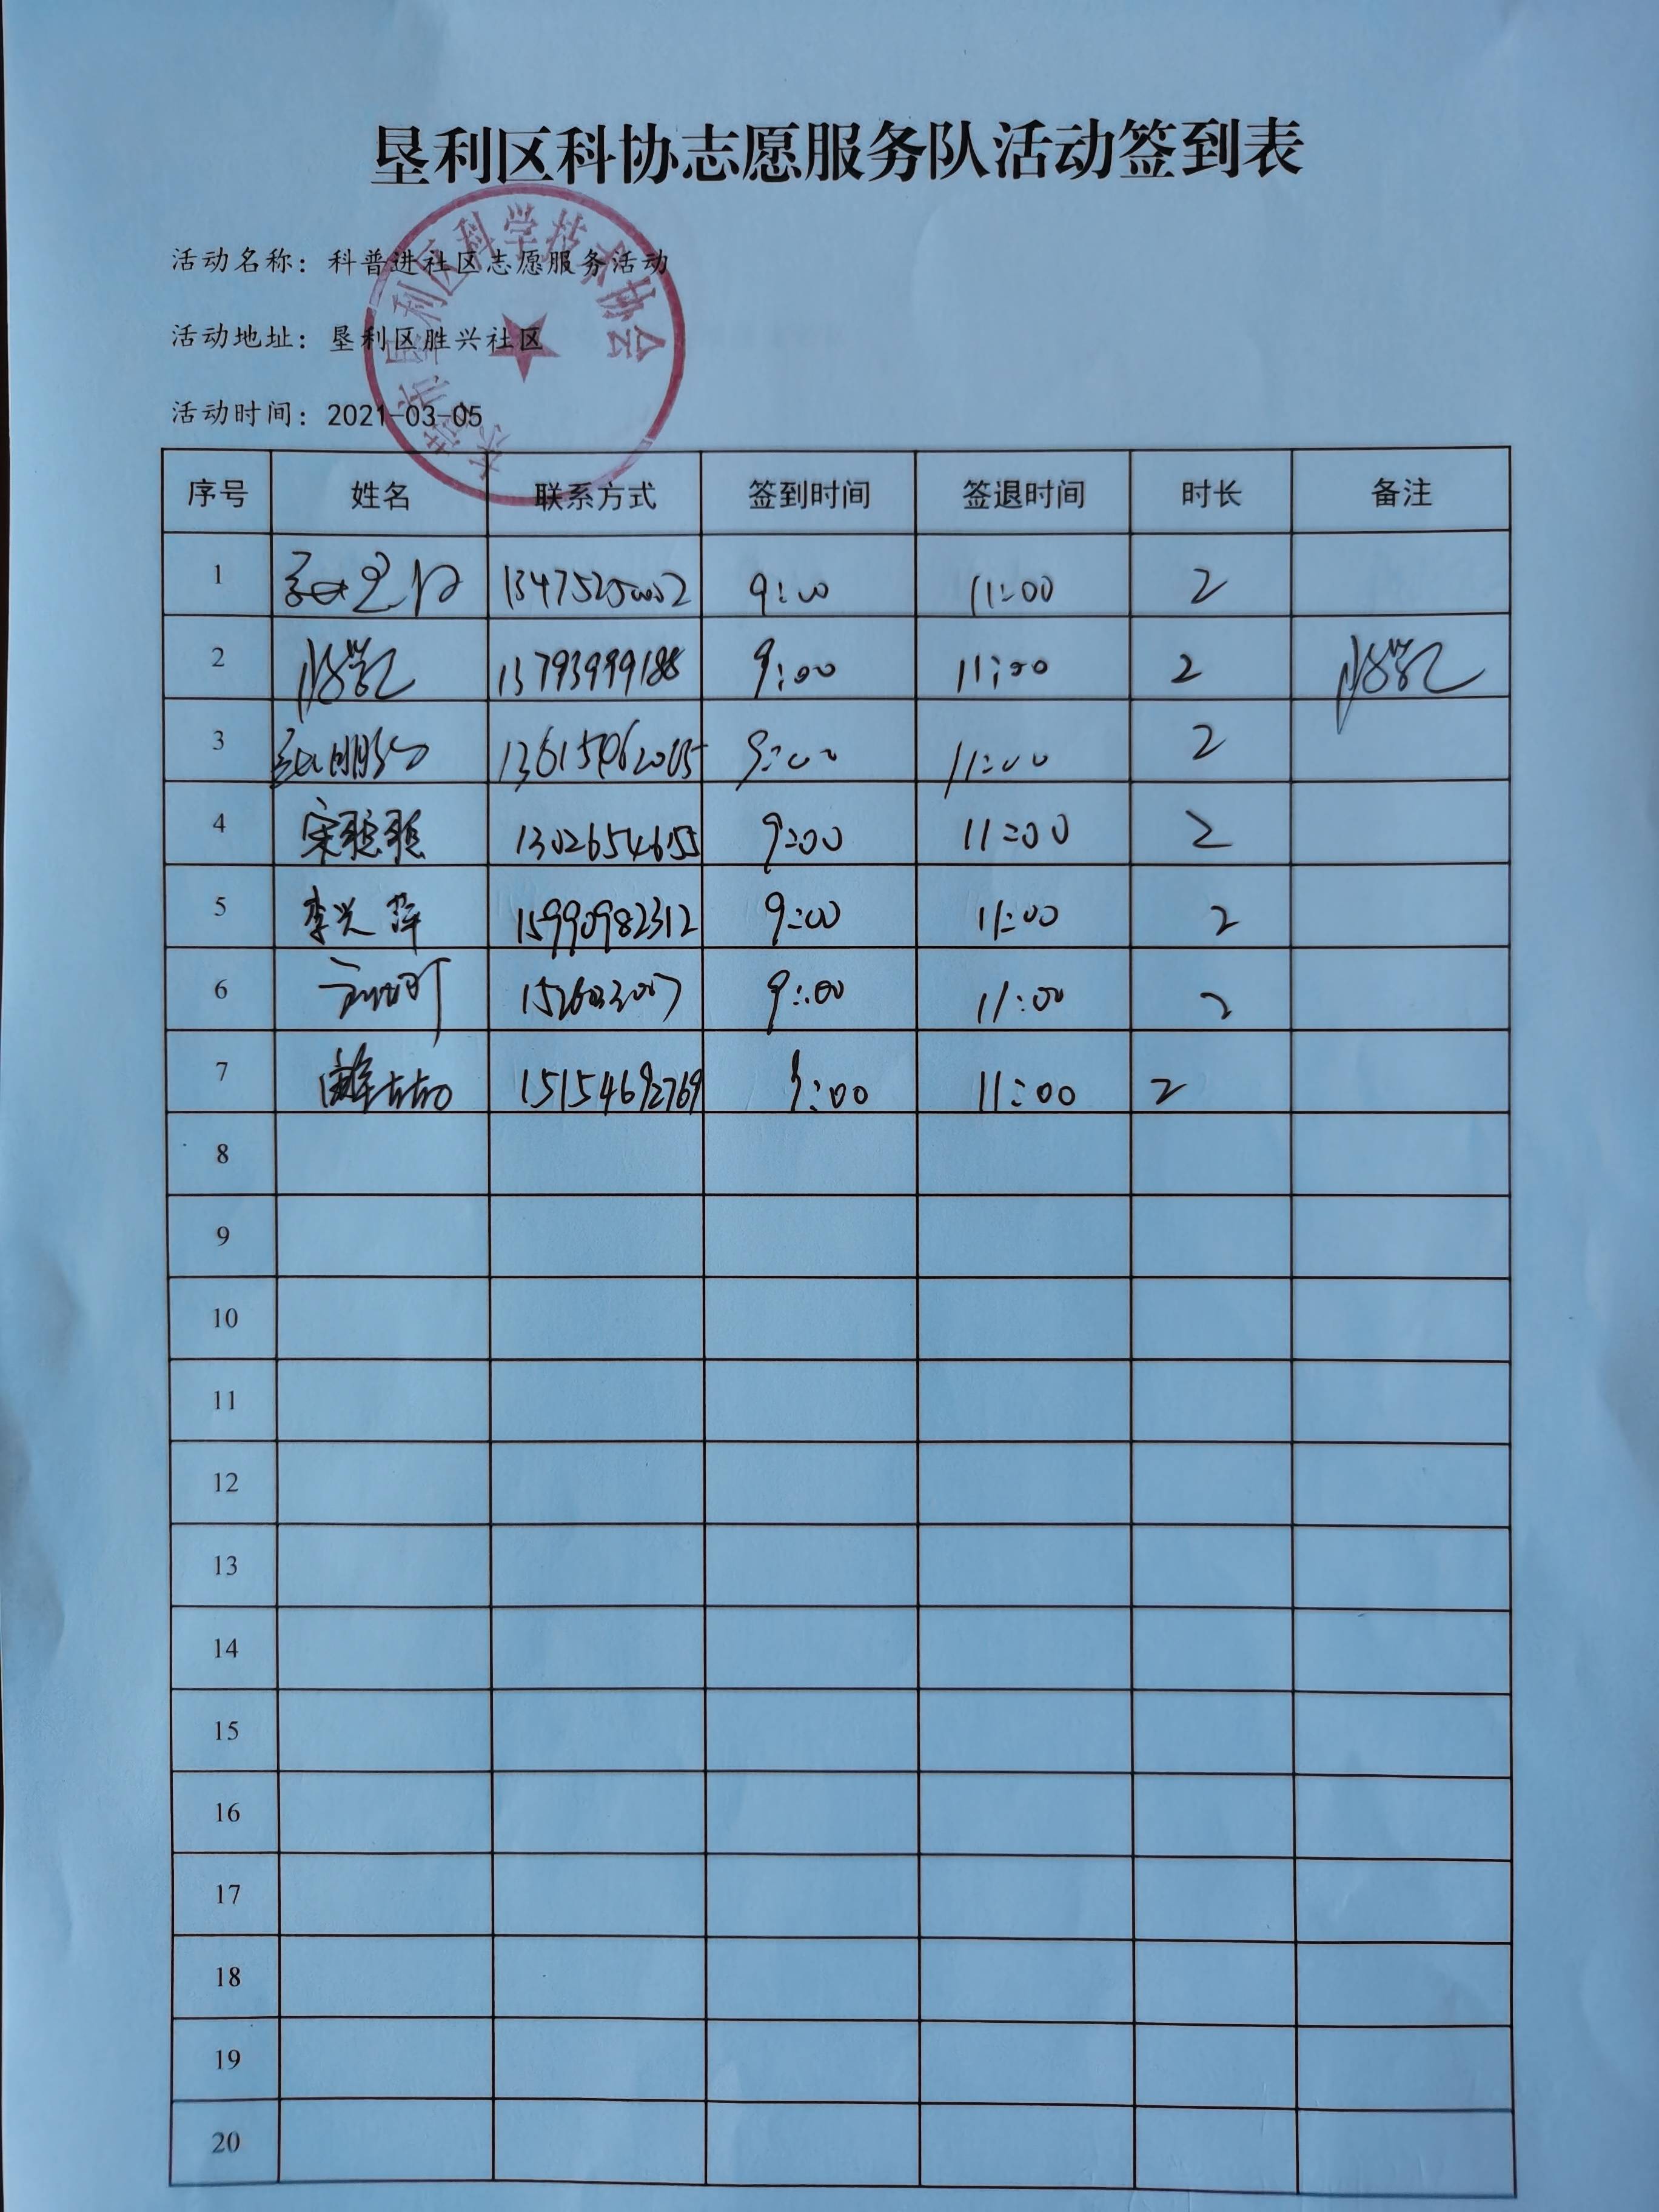 垦利区科协志愿服务队活动签到表
东营市垦利区科学技术协会
活动名称：科普进社区志愿服务活动
活动地址：垦利区胜兴社区
活动时间：2021-03-05
序号 姓名 联系方式 签到时间 签退时间 时长 备注
1 9:00 11:00 2
2 13793999188 9:00 11:00 2
3 9:00 11:00 2
4 宋聪聪 13026546155 9:00 11:00 2
5 李兴萍 15990982312 9:00 11:00 2
6 9:00 11:00 2
7 15154692769 9:00 11:00 2
8
9
10
11
12
13
14
15
16
17
18
19
20